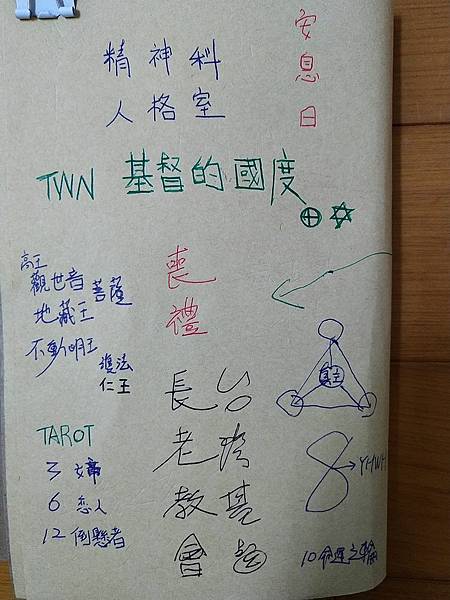 精神科
人格室
安息日
TWN 基督的國度
高王
觀世音
菩薩
地藏王
不動明王
進法
仁王
喪禮
長老教會
台灣基
TAROT
3 女帝
6 恋人
12 倒懸者
8→YHWH
10 命運之輪